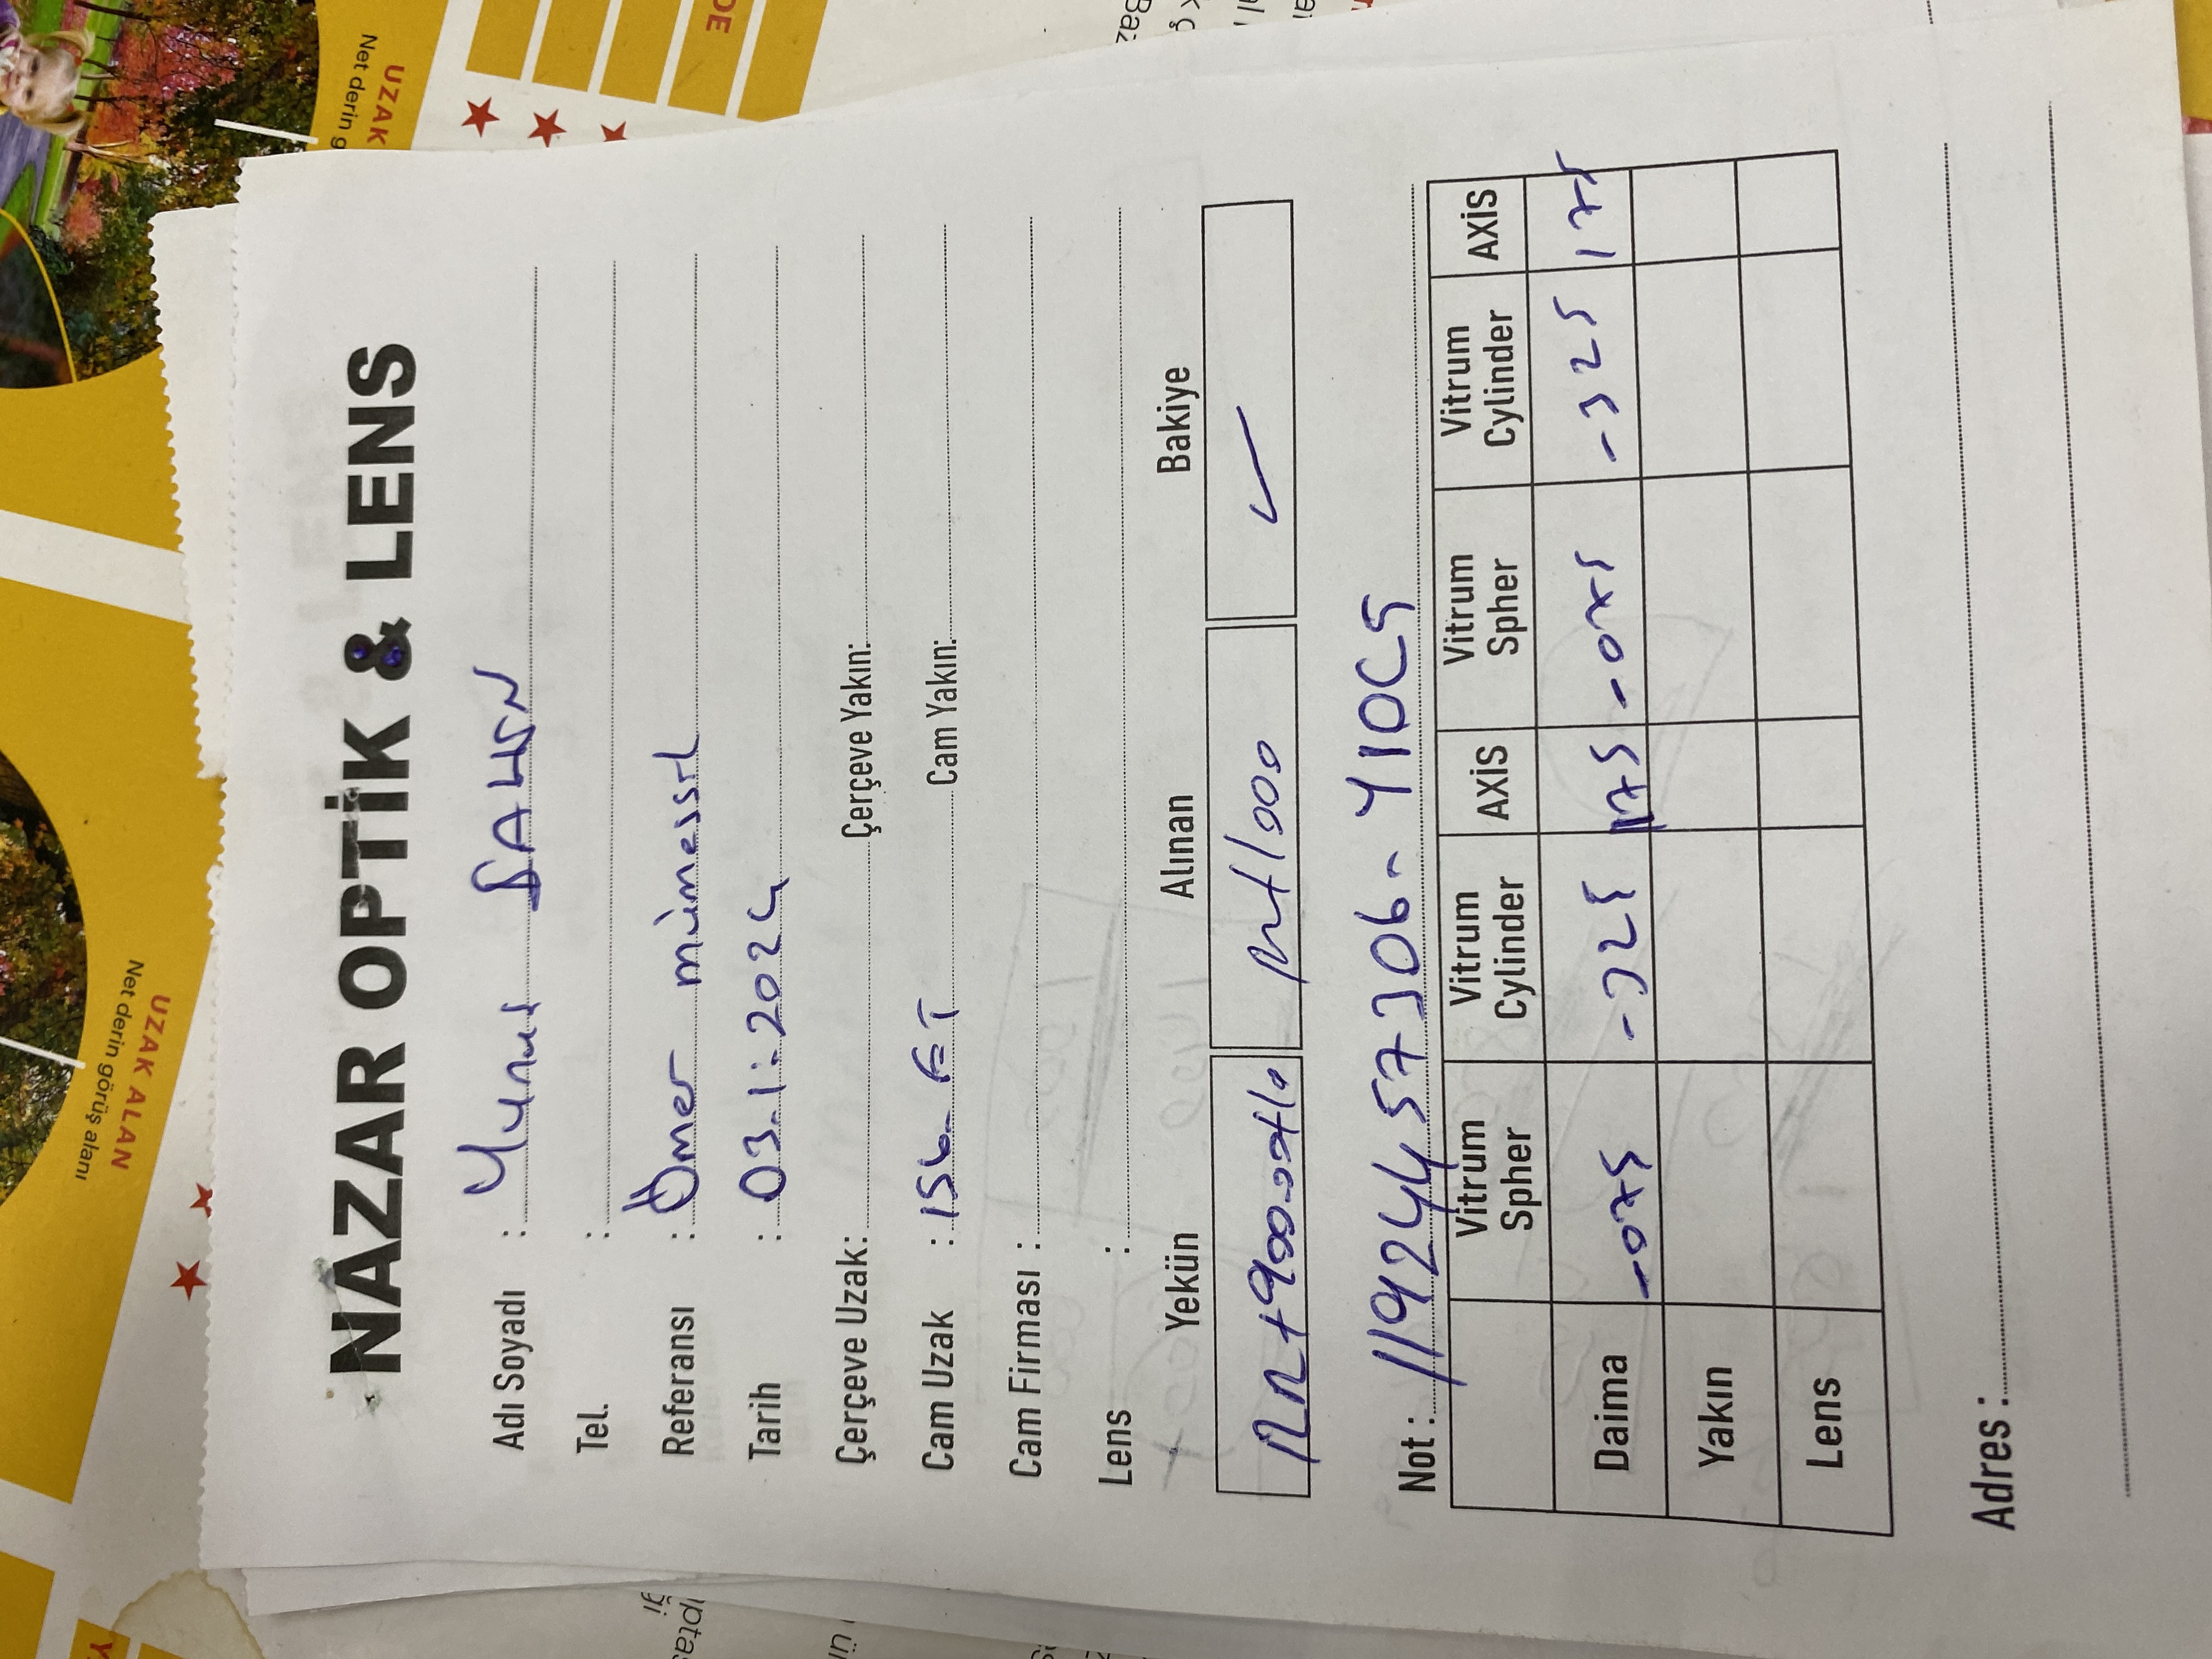 UZAK ALAN
Net derin görüş alanı
UZAK
Net derin g
NAZAR OPTİK & LENS
Adı Soyadı : Yunus ŞAHİN
Tel. :
Referansı : Ömer mümessil
Tarih : 03.1.2024
Çerçeve Uzak: Çerçeve Yakın:
Cam Uzak : 156- Cam Yakın:
Cam Firması :
Lens :
Yekün Alınan Bakiye
✓
Not : 11924457306-
Vitrum Spher Vitrum Cylinder AXİS Vitrum Spher Vitrum Cylinder AXİS
Daima -075 -325 175 -075 -325 175
Yakın
Lens
Adres :